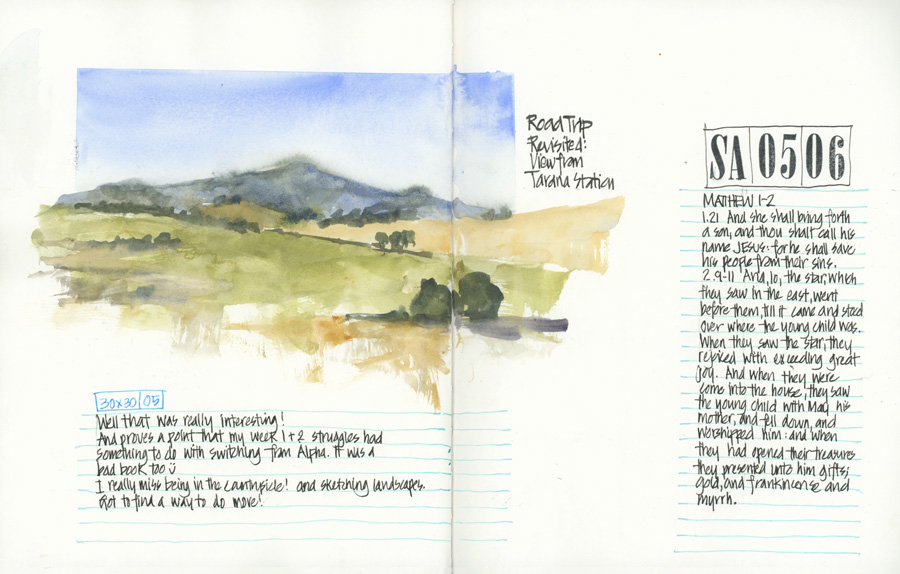 Road Trip
Revisited:
View from
Tarana Station
SA 05 06
MATTHEW 1-2
1.21 And she shall bring forth
a son, and thou shalt call his
name JESUS: for he shall save
his people from their sins.
2.9-11 And, lo, the star, when
they saw in the east, went
before them, till it came and stood
over where the young child was.
When they saw the star, they
rejoiced with exceeding great
joy. And when they were
come into the house, they saw
the young child with Mary his
mother, and fell down, and
worshipped him: and when
they had opened their treasures
they presented unto him gifts;
gold, and frankincense and
myrrh.
30x30 05
Well that was really interesting!
And proves a point that my week 1+2 struggles had
something to do with switching from Alpha. It was a
bad book too ü
I really miss being in the countryside! and sketching landscapes.
Got to find a way to do more!